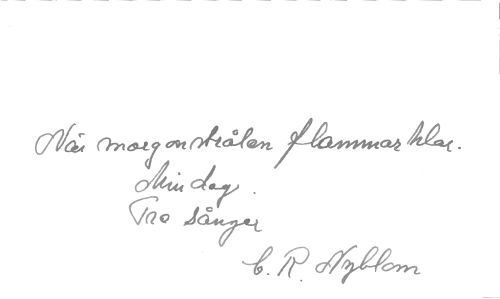 När morgonstrålen flammar klar.
Min dag.
Tre sånger
C. R. Nyblom